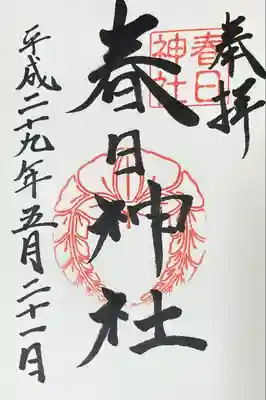 奉拝
春日神社
春日
神社
平成二十九年五月二十一日